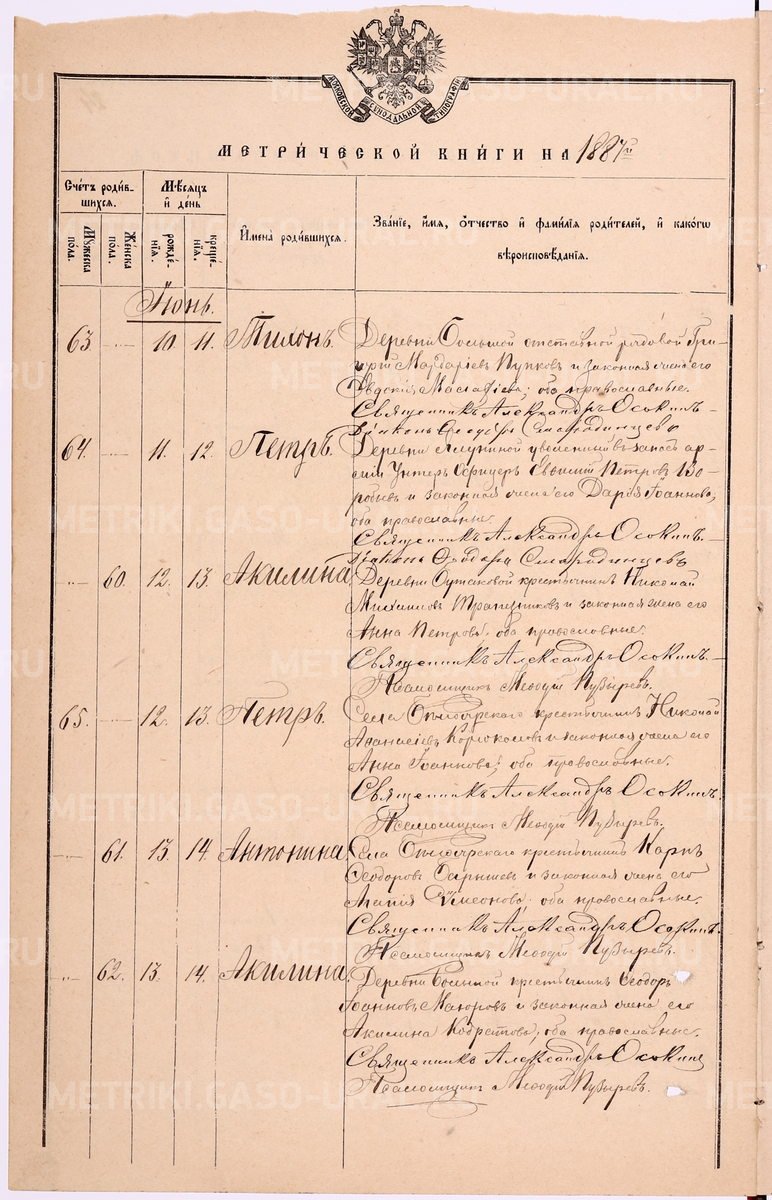 МОСКОВСКОЙ СѴНОДАЛЬНОЙ ТИПОГРАФІИ
МЕТРИ́ЧЕСКОЙ КНИ́ГИ НА 1887й
Сче́тъ роди́в-
шихся.
Мꙋ́жеска по́ла.
Же́нска по́ла.
Мѣ́сяцъ и҆ де́нь
рожде́-
нїя.
креще́-
нїя.
И҆мена̀ роди́вшихся.
Зва́нїе, и҆́мя, ѻ҆́тчество и҆ фами́лїя роди́телей, и҆ како́гѡ
вѣроисповѣ́данїя.
Іюнь.
63. 10. 11. Тихонъ. Деревни Большой отставной рядовой Гри-
горій Мардаріевъ Пупковъ и законная жена его
Евдокія; оба православные.
Священникъ Александръ Осокинъ
Діаконъ Ѳеодоръ Смородинцевъ
64. 11. 12. Петръ. Деревни уволенный въ запасъ ар-
міи Унтеръ Офицеръ Петровъ Во-
робьевъ и законная жена его Дарья Іоаннова;
оба православные.
Священникъ Александръ Осокинъ.
Діаконъ Ѳеодоръ Смородинцевъ
60. 12. 13. Акилина Деревни крестьянинъ Николай
Михаиловъ Трапезниковъ и законная жена его
Анна Петрова; оба православные.
Священникъ Александръ Осокинъ.
Псаломщикъ Меѳодій Пузыревъ.
65. 12. 13. Петръ. Села крестьянинъ Николай
Аѳанасіевъ и законная жена его
Анна Іоаннова; оба православные.
Священникъ Александръ Осокинъ.
Псаломщикъ Меѳодій Пузыревъ.
61. 13. 14. Антонина. Села крестьянинъ Карпъ
Ѳеодоровъ и законная жена его
Агапія Сѵмеонова оба православные.
Священникъ Александръ Осокинъ.
Псаломщикъ Меѳодій Пузыревъ.
62. 13. 14. Акилина. Деревни Большой крестьянинъ Ѳеодоръ
Іоанновъ Маюровъ и законная жена его
Акилина; оба православные.
Священникъ Александръ Осокинъ
Псаломщикъ Меѳодій Пузыревъ.
METRIKI.GASO-URAL.RU